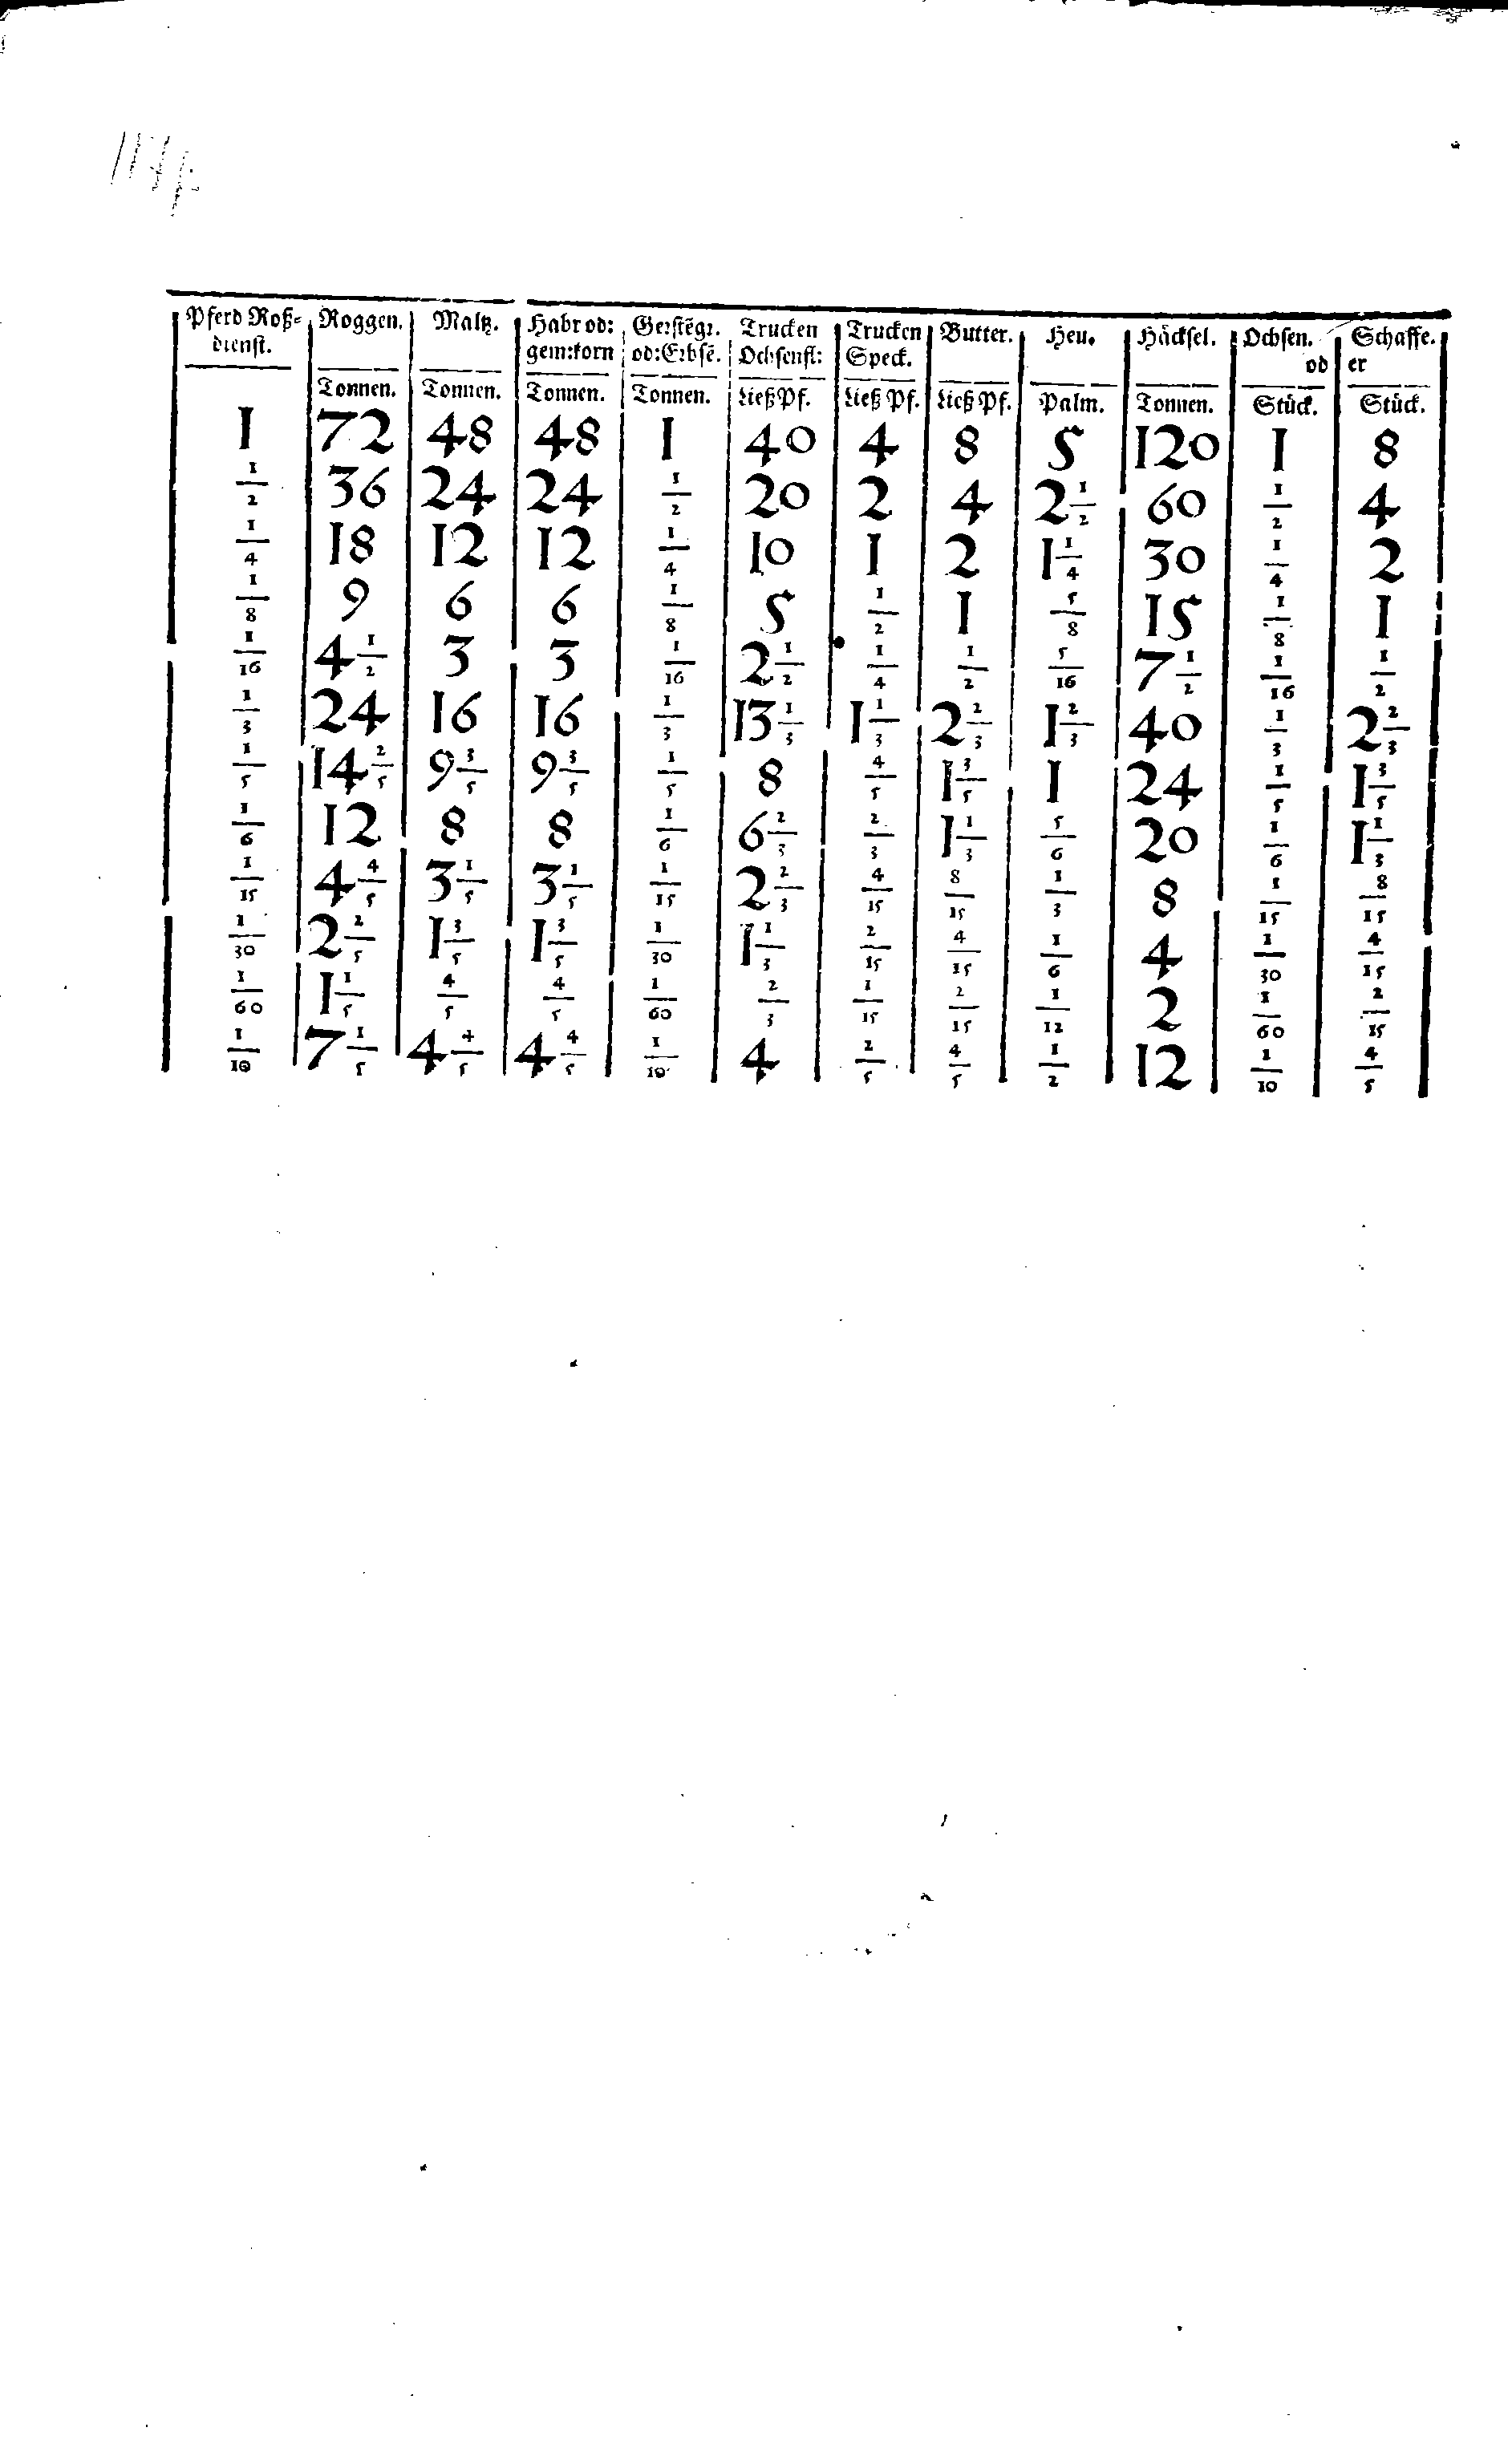 Pferd Roß- Roggen. Maltz. Habr od: Gerstẽgr. Trucken Trucken Butter. Heu. Häcksel. Ochsen. Schaffe.
dienst. gem:korn od:Erbsẽ. Ochsenfl: Speck. od er
Tonnen. Tonnen. Tonnen. Tonnen. Ließ Pf. Ließ Pf. Ließ Pf. Palm. Tonnen. Stück. Stück.
1 72 48 48 1 40 4 8 5 120 1 8
1/2 36 24 24 1/2 20 2 4 2 1/2 60 1/2 4
1/4 18 12 12 1/4 10 1 2 1 1/4 30 1/4 2
1/8 9 6 6 1/8 5 1/2 1 5/8 15 1/8 1
1/16 4 1/2 3 3 1/16 2 1/2 1/4 1/2 5/16 7 1/2 1/16 1/2
1/3 24 16 16 1/3 13 1/3 1 1/3 2 2/3 1 2/3 40 1/3 2 2/3
1/5 14 2/5 9 3/5 9 3/5 1/5 8 4/5 1 3/5 1 24 1/5 1 3/5
1/6 12 8 8 1/6 6 2/3 2/3 1 1/3 5/6 20 1/6 1 1/3
1/15 4 4/5 3 1/5 3 1/5 1/15 2 2/3 4/15 8/15 1/3 8 1/15 8/15
1/30 2 2/5 1 3/5 1 3/5 1/30 1 1/3 2/15 4/15 1/6 4 1/30 4/15
1/60 1 1/5 4/5 4/5 1/60 2/3 1/15 2/15 1/12 2 1/60 2/15
1/10 7 1/5 4 4/5 4 4/5 1/10 4 2/5 4/5 1/2 12 1/10 4/5